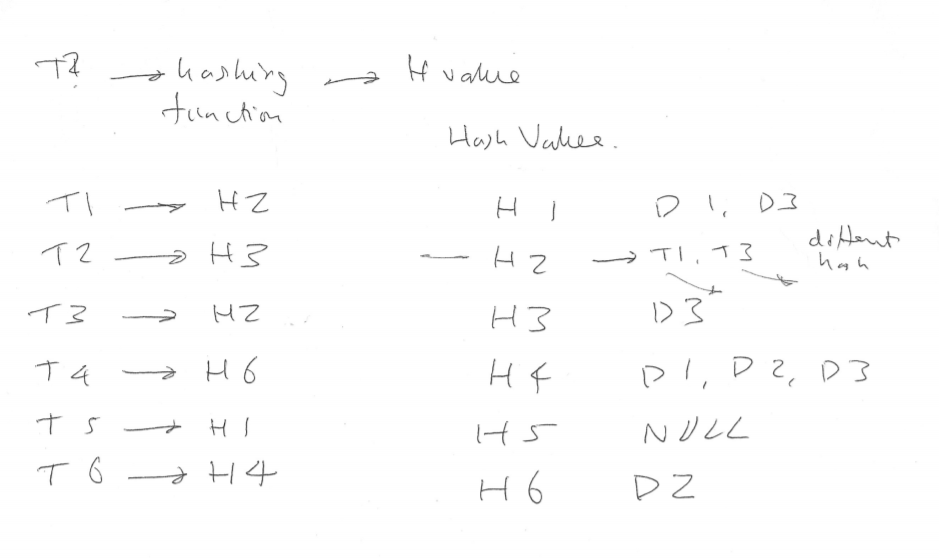 T2 → hashing → H value
function
Hash Value.
T1 → H2
T2 → H3
T3 → H2
T4 → H6
T5 → H1
T6 → H4
H1 D1, D3
— H2 → T1, T3 different hash
H3 D3
H4 D1, D2, D3
H5 NULL
H6 D2